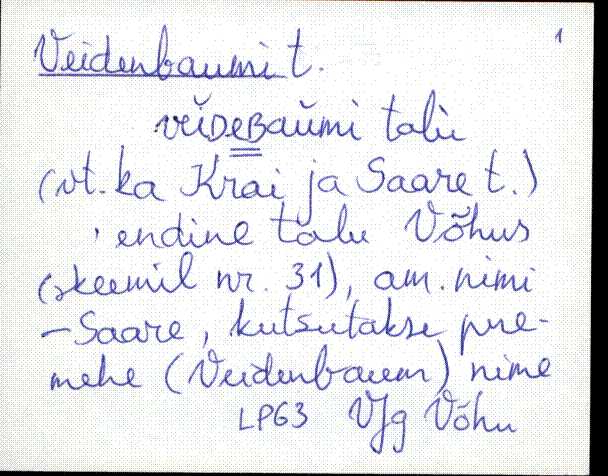 1
Veidenbaumi t.
vĕiDEBaŭmi talu
(vt. ka Krai ja Saare t.)
endine talu Võhus
(skeemil nr. 31), am. nimi
– Saare, kutsutakse pere-
mehe (Veidenbaum) nime
LPG3 VJg Võhu